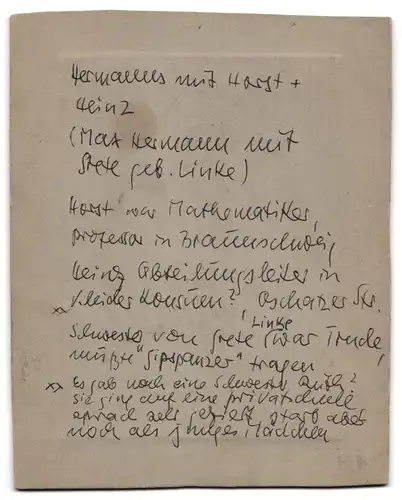 Hermanns mit Horst +
Heinz
(Max Hermann mit
Grete geb. Linke)
Horst war Mathematiker,
Professor in Braunschweig
Heinz Abteilungsleiter in
xx Kleider Konsum?, Oschatzer Str.
Linke
Schwester von Grete war Trude,
mußte "Gipspanzer" tragen
xx Es gab noch eine Schwester Ruth?
sie ging auf eine Privatschule
sprach sehr geziert starb aber
noch als junges Mädchen